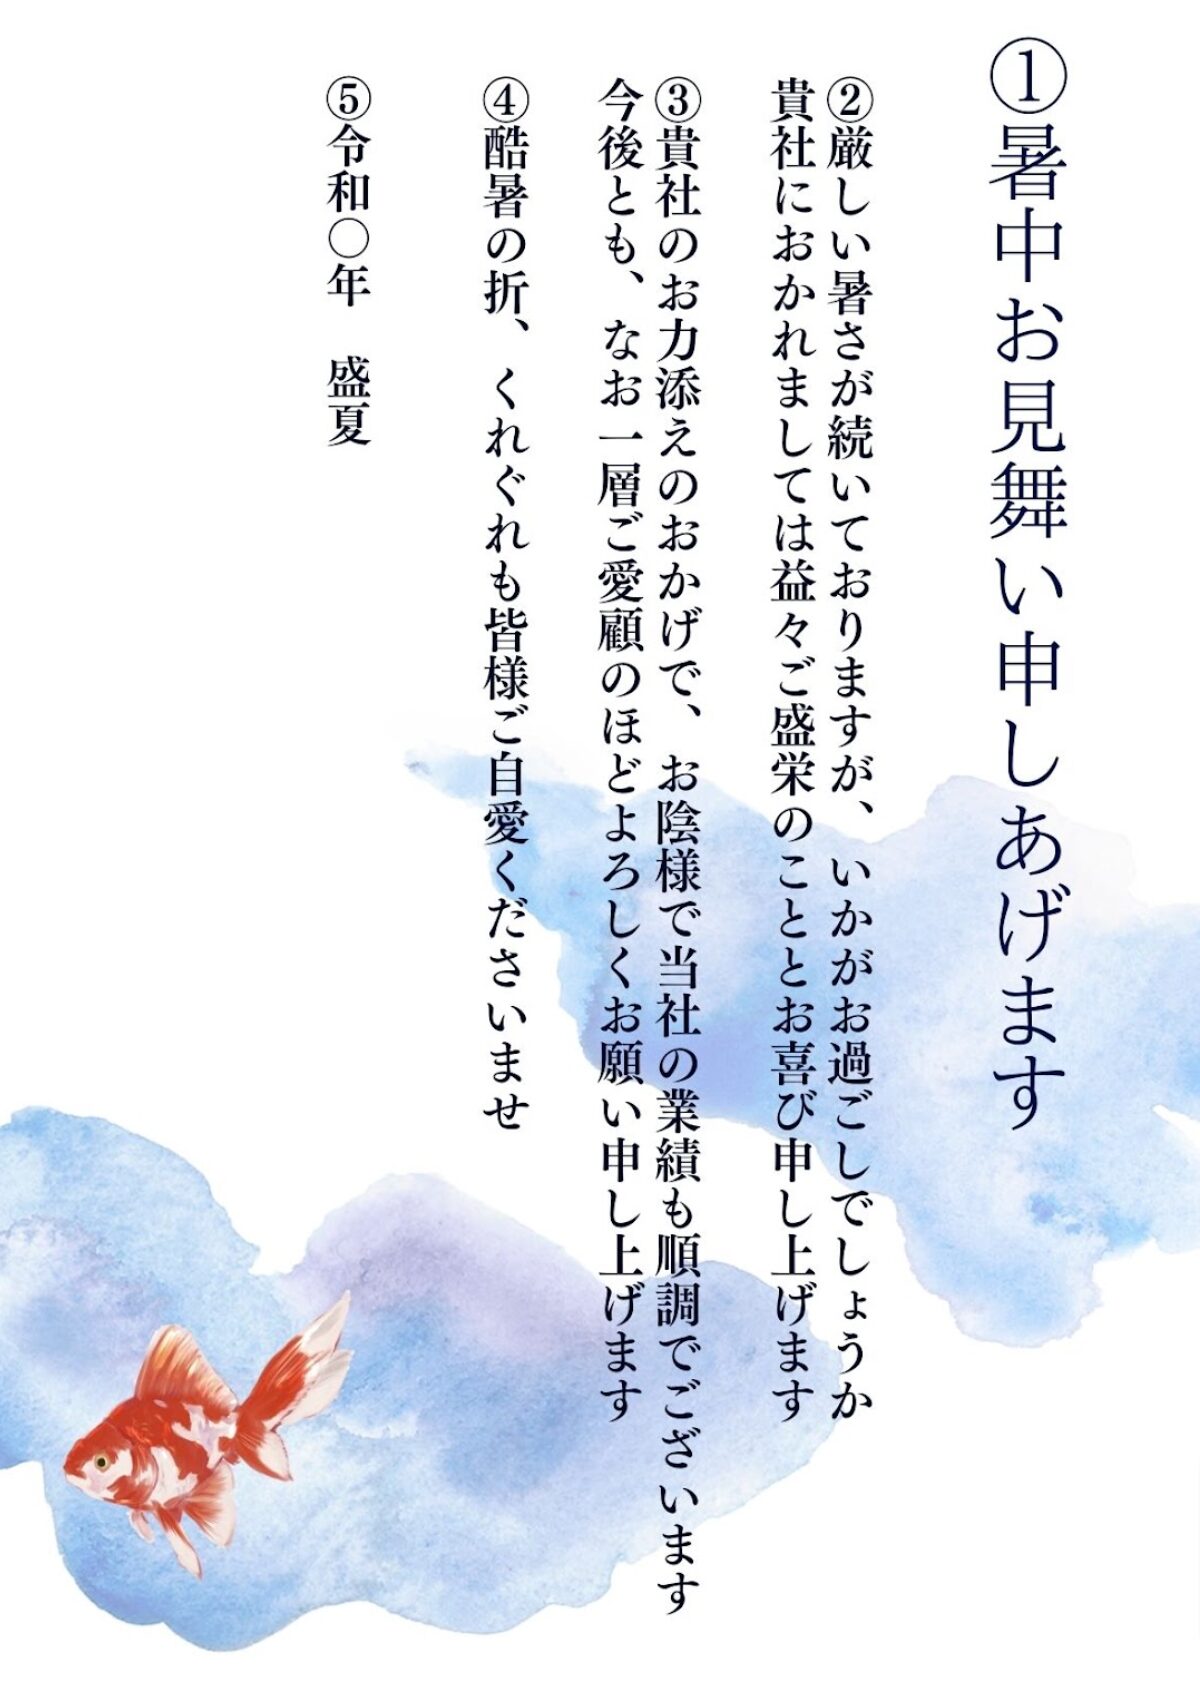 ①暑中お見舞い申しあげます
②厳しい暑さが続いておりますが、いかがお過ごしでしょうか
貴社におかれましては益々ご盛栄のこととお喜び申し上げます
③貴社のお力添えのおかげで、お陰様で当社の業績も順調でございます
今後とも、なお一層ご愛顧のほどよろしくお願い申し上げます
④酷暑の折、くれぐれも皆様ご自愛くださいませ
⑤令和〇年　盛夏